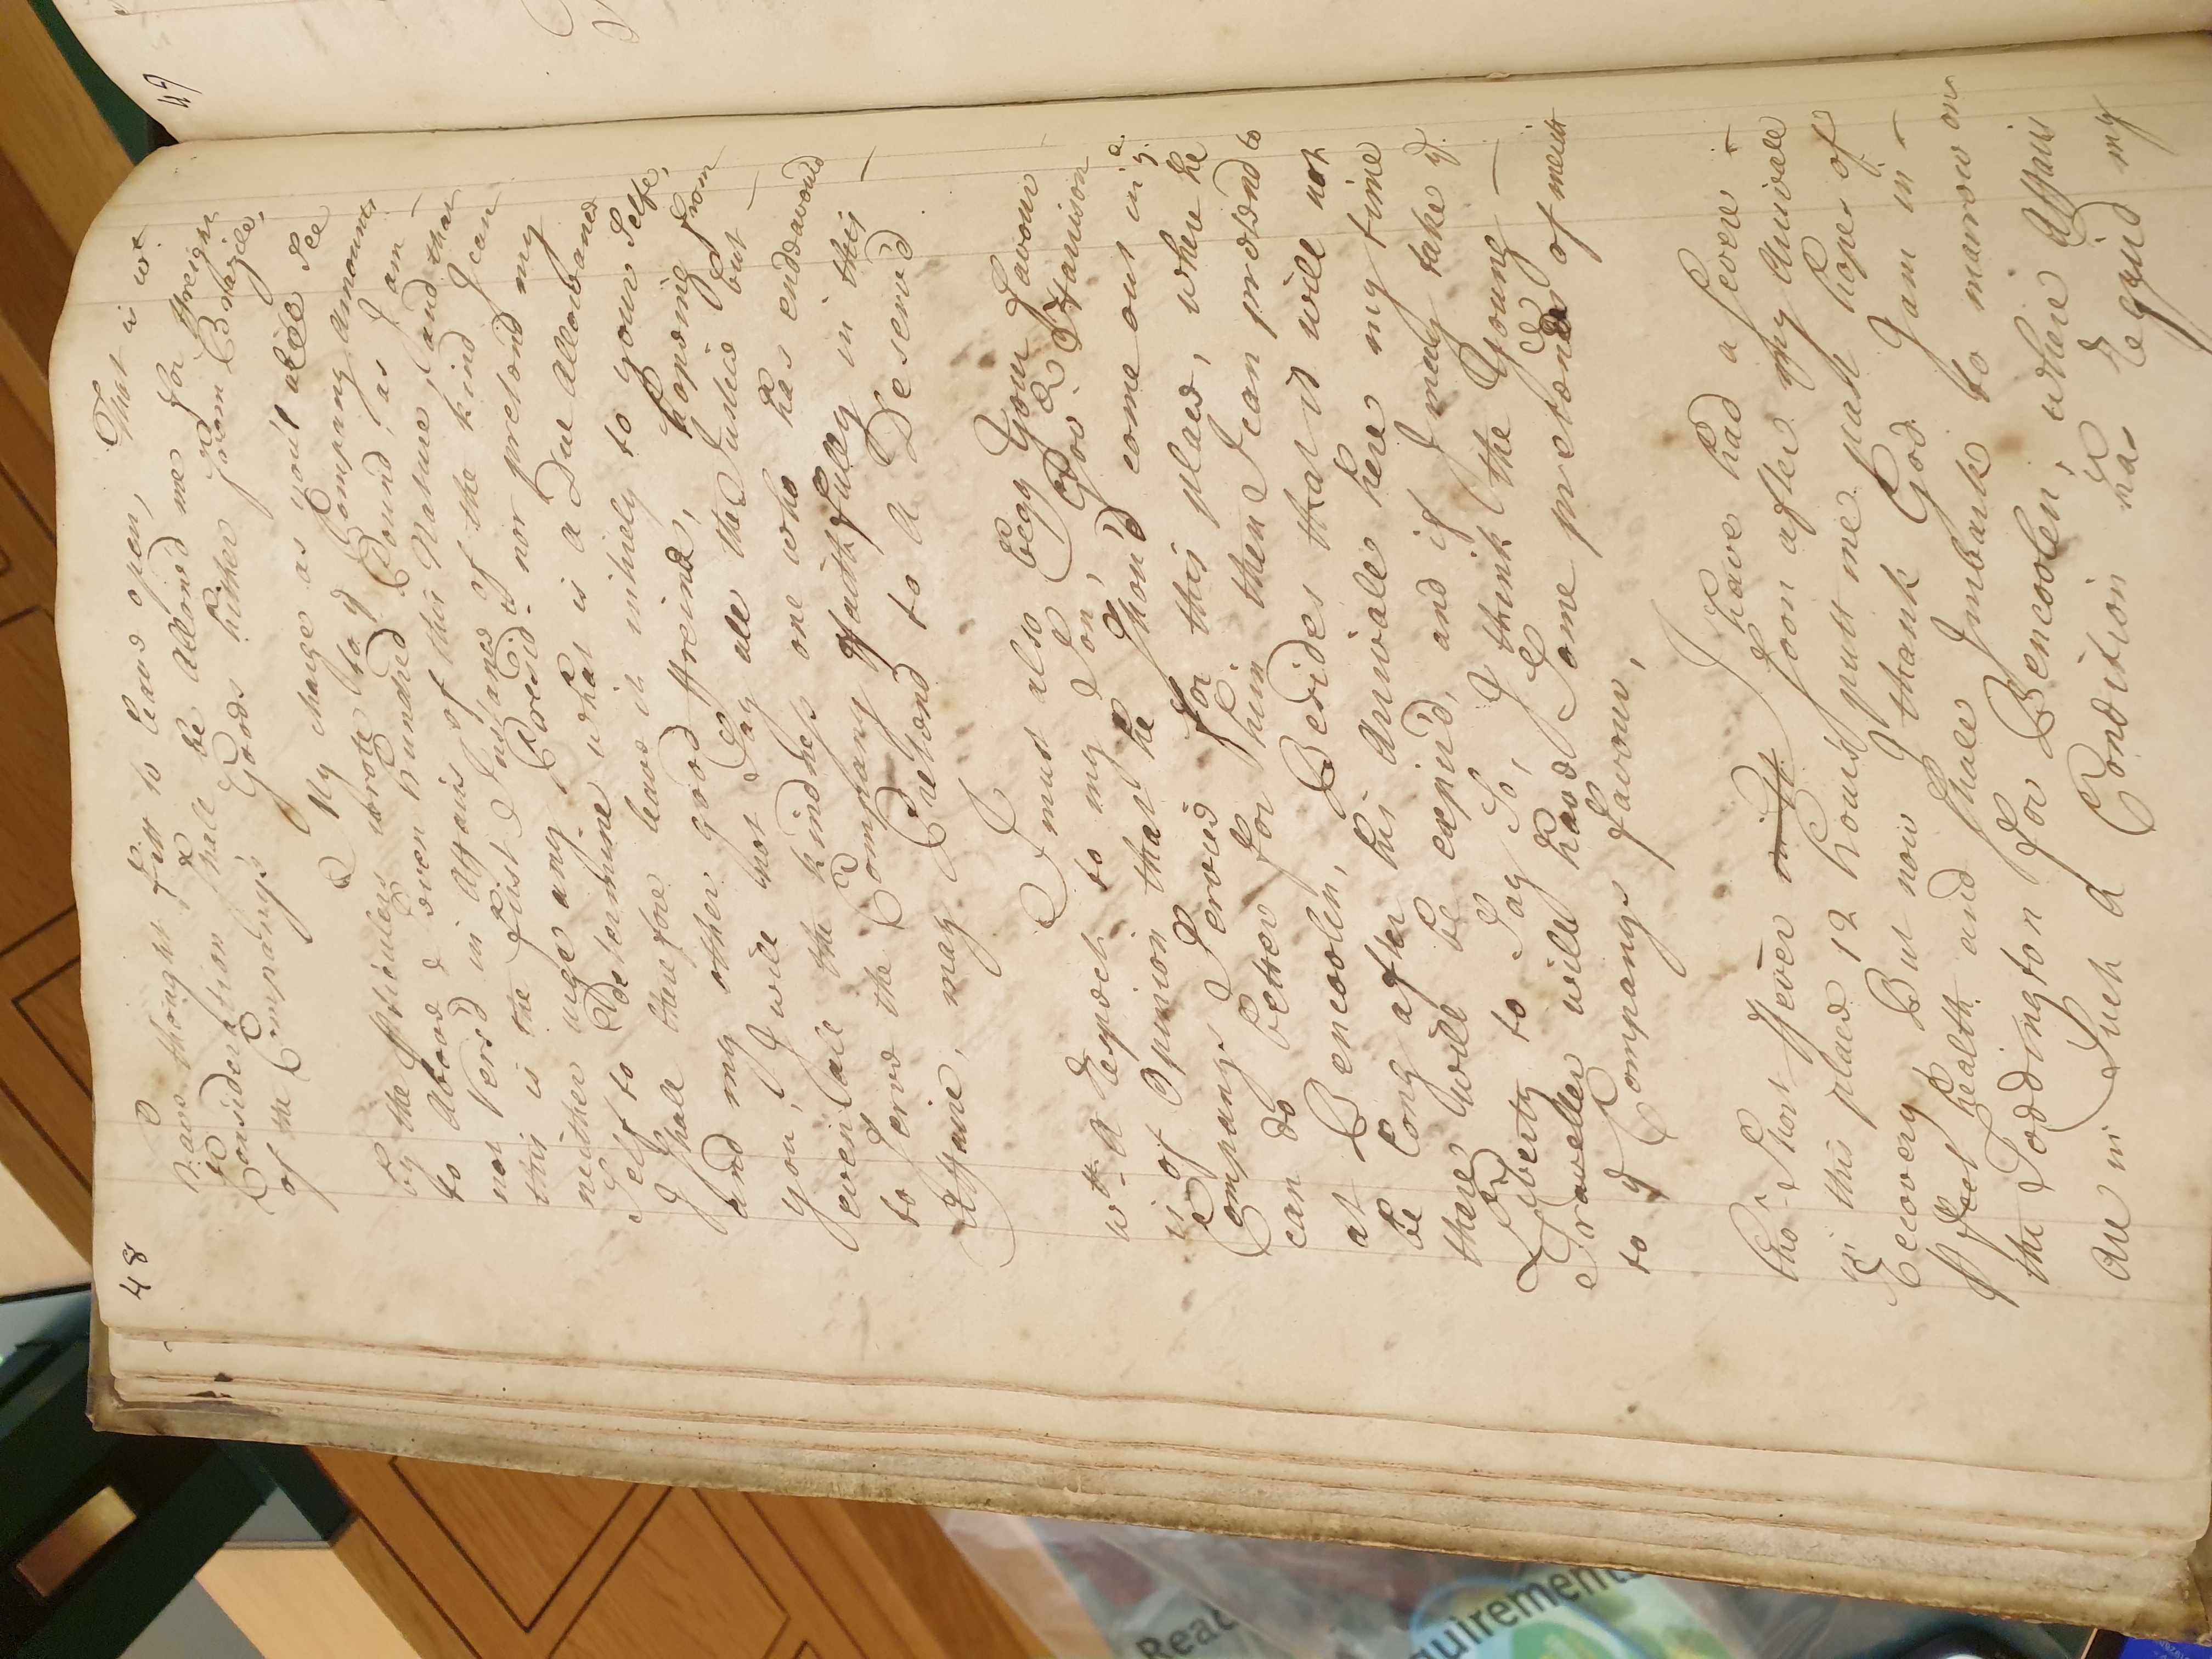 48
I have thought fitt to leave open, That is wt.
Consideration shall be allowed me for freight
of the Companys Goods hither from Brazile,
My charge as you'l also See
by the Particulers wrote to ye Company amounts
to above Seven hundred Pound, as I am
not Vers'd in Affairs of this Nature, and that
this is the first Instance of the kind I can
neither urge any Presidt. nor pretend my
Self to Determine what is a Due allowance
I shall therefore leave it intirely to your Selfe,
and my other good ffreinds, hopeing from
you, I will not Say all the Justice but
even all the kindness one who has endeavourd
to Serve the Company ffaithfully in this
Affaire, may Pretend to a Deserv'd
I must also begg Your favour
wth. Respect to my Son, Govr. Harrison
is of Opinion that he shou'd come out in ye.
Companys Service for this place, where he
can do better for him then I can pretend to
at Bencoolen, Besides that it will not
be long after his Arrivale here my time
there will be expir'd, and if I may take ye.
Liberty to Say So, I think the Young
Traveller will have Some pretence of merit
to ye Companys favour,
I have had a severe
tho' Short ffever soon after my Arrivale
in this place 12 hours putt me past hopes of
Recovery But now I thank God I am in
p'fect health and Shall Imbark to morrow on
the Toddington for Bencoolen, where Affairs
are in Such a Condition has Requir'd my
49
Read
quirements